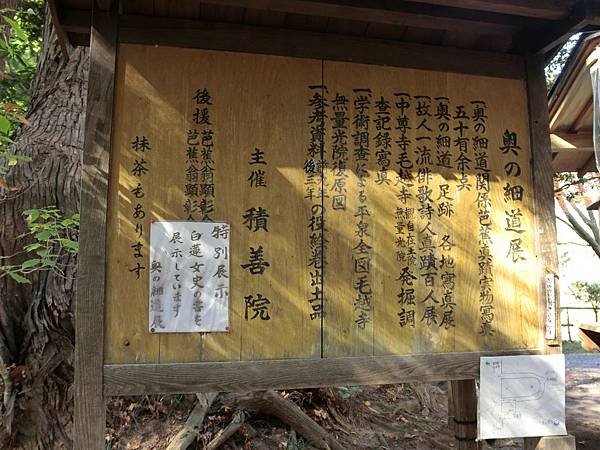 奥の細道展
一、奥の細道関係芭蕉真蹟実物寫真
五十有余点
一、奥の細道　足跡　各地寫真展
一、故人一流俳歌詩人真蹟百人展
一、中尊寺毛越寺 観自在王院 無量光院 発掘調
査記録寫真
一、学術調査による平泉全図毛越寺
無量光院復原図
一、参考資料 後三年の役絵巻出土品
主催　積善院
後援　芭蕉翁顕彰会
芭蕉翁顕彰
抹茶もあります
特別展示
白蓮女史の書を
展示しています
奥の細道展